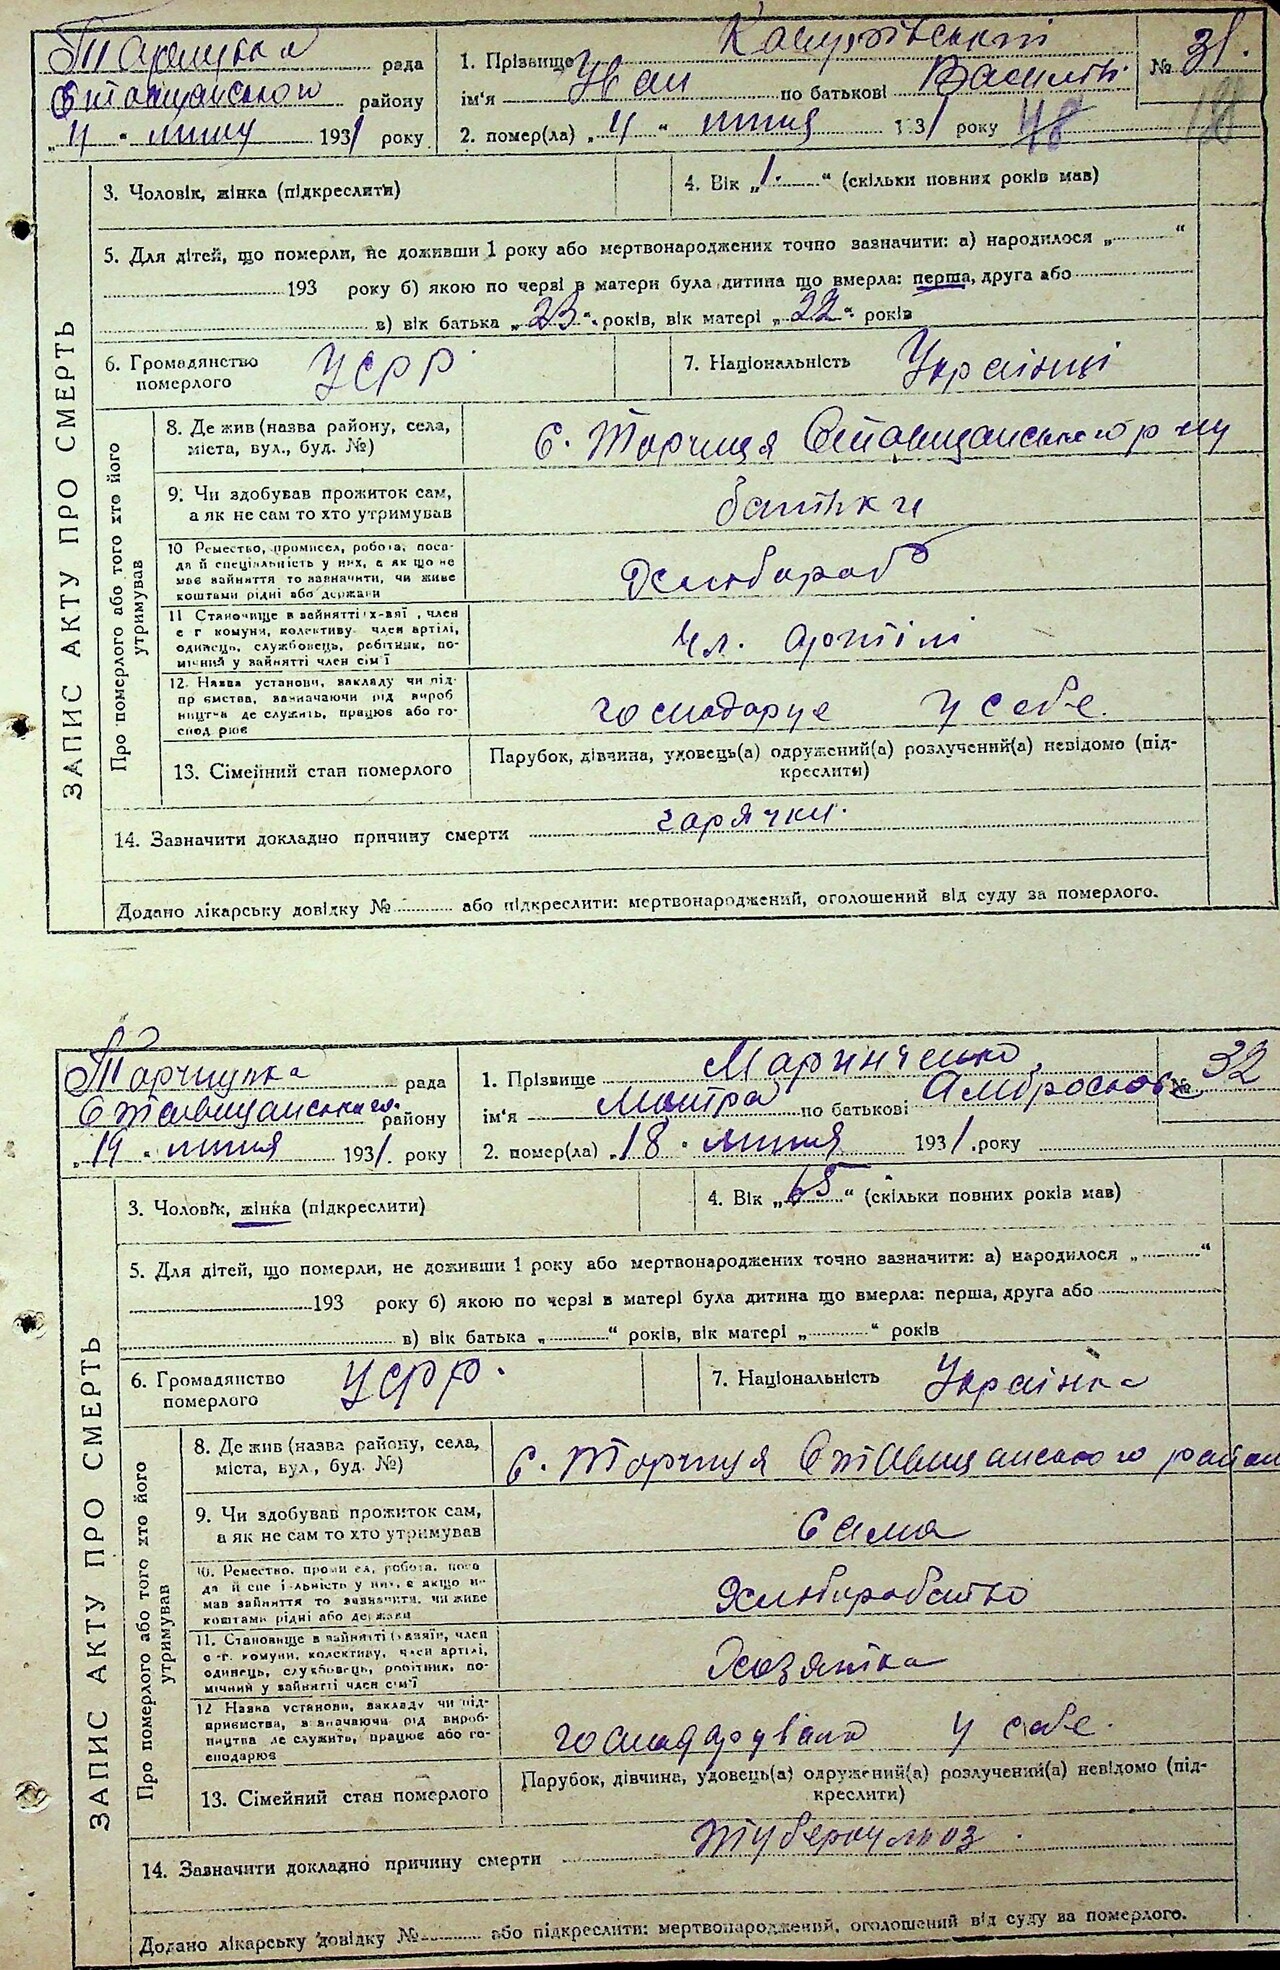 Торчицька рада
Ставищанського району
"4" липня 1931 року
1. Прізвище
ім'я Іван по батькові Василів.
№ 31.
2. помер(ла) "4" липня 1931 року 48
ЗАПИС АКТУ ПРО СМЕРТЬ
3. Чоловік, жінка (підкреслити)
4. Вік "1." (скільки повних років мав)
5. Для дітей, що померли, не доживши 1 року або мертвонароджених точно зазначити: а) народилося " "
193 року б) якою по черзі в матери була дитина що вмерла: перша, друга або
в) вік батька "23" років, вік матері "22" років
6. Громадянство
померлого
УСРР.
7. Національність Українці
Про померлого або того хто його
утримував
8. Де жив (назва району, села,
міста, вул., буд. №)
С. Торчиця Ставищанського р-ну
9. Чи здобував прожиток сам,
а як не сам то хто утримував
батьки
10 Ремество, промисел, робота, поса-
да й спеціяльність у них, а як що не
має зайняття то зазначити, чи живе
коштами рідні або держави
Хлібороб
11 Становище в зайнятті , член
с г комуни, колективу член артілі,
одинець, службовець, робітник, по-
мічний у зайнятті член сім'ї
чл. артілі
12. Назва установи, закладу чи під-
пр ємства, зазначаючи рід вироб
ництва де служить, працює або го-
спод рює
господарує у себе.
13. Сімейний стан померлого
Парубок, дівчина, удовець(а) одружений(а) розлучений(а) невідомо (під-
креслити)
14. Зазначити докладно причину смерти гарячки.
Додано лікарську довідку № або підкреслити: мертвонароджений, оголошений від суду за померлого.
Торчицька рада
Ставищанського району
"19" липня 1931. року
1. Прізвище Маринченко
ім'я по батькові Амбросиов
№ 32
2. помер(ла) "18" липня 1931. року
ЗАПИС АКТУ ПРО СМЕРТЬ
3. Чоловік, жінка (підкреслити)
4. Вік "65" (скільки повних років мав)
5. Для дітей, що померли, не доживши 1 року або мертвонароджених точно зазначити: а) народилося " "
193 року б) якою по черзі в матері була дитина що вмерла: перша, друга або
в) вік батька " " років, вік матері " " років
6. Громадянство
померлого
УСРР.
7. Національність Українка
Про померлого або того хто його
утримував
8. Де жив (назва району, села,
міста, вул., буд. №)
С. Торчиця Ставищанського район
9. Чи здобував прожиток сам,
а як не сам то хто утримував
Сама
10. Ремество, промисел, робота, поса
да й спеціяльність у них, а якщо н-
має зайняття то зазначити, чи живе
коштами рідні або держави
Хліборобство
11. Становище в зайнятті , член
с -г. комуни, колективу, член артілі,
одинець, службовець, робітник, по-
мічний у зайнятті член сім'ї
Хозяйка
12 Назва установи, закладу чи під-
приємства, зазначаючи рід вироб-
ництва де служить, працює або го-
сподарює
господарувала у себе.
13. Сімейний стан померлого
Парубок, дівчина, удовець(а) одружений(а) розлучений(а) невідомо (під-
креслити)
14. Зазначити докладно причину смерти туберкульоз.
Додано лікарську довідку № або підкреслити: мертвонароджений, оголошений від суду за померлого.